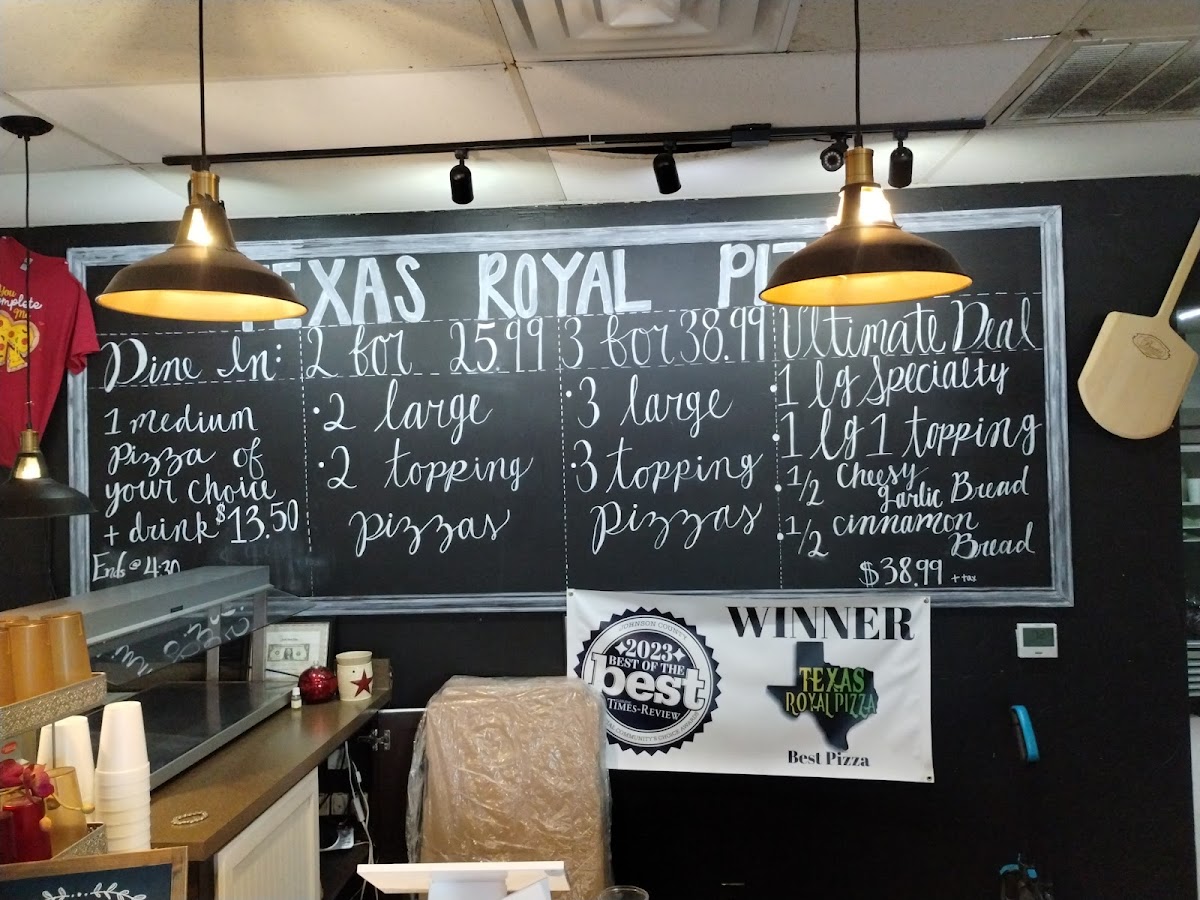 TEXAS ROYAL
Dine In:
1 medium
pizza of
your choice
+ drink $13.50
Ends @ 4:30
2 for 25.99
• 2 large
• 2 topping
pizzas
3 for 38.99
• 3 large
• 3 topping
pizzas
Ultimate Deal
• 1 lg Specialty
• 1 lg 1 topping
• 1/2 Cheesy
garlic Bread
• 1/2 cinnamon
Bread
$38.99 + tax
You
Complete
Me
JOHNSON COUNTY
2023
BEST OF THE
best
TIMES-REVIEW
COMMUNITY'S CHOICE
WINNER
TEXAS
ROYAL PIZZA
Best Pizza